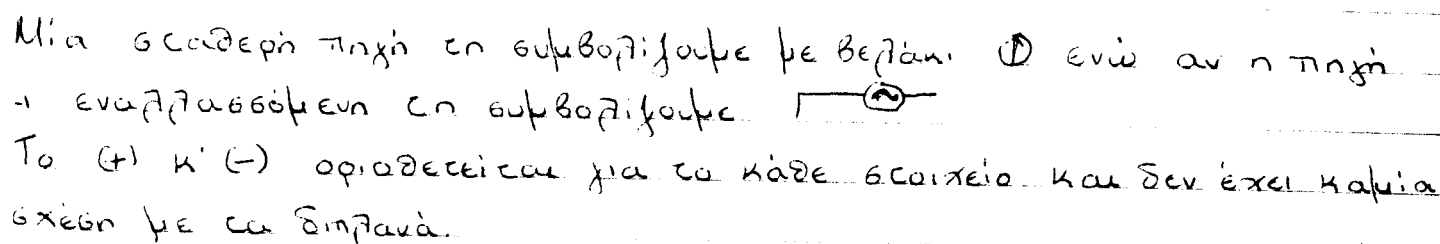 Μία σταθερή πηγή τη συμβολίζουμε με βελάκι ενώ αν η πηγή
εναλλασσόμενη τη συμβολίζουμε
Το (+) κ' (-) οριοθετείται για το κάθε στοιχείο και δεν έχει καμία
σχέση με τα διπλανά.